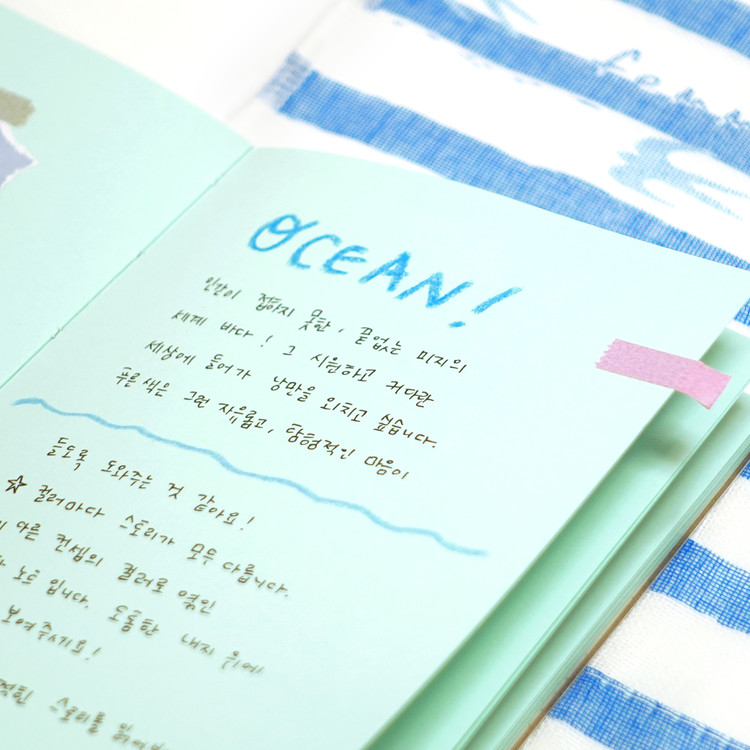 OCEAN!
인간이 접하지 못한, 끝없는 미지의
세계 바다! 그 시원하고 커다란
세상에 들어가 낭만을 외치고 싶습니다.
푸른색은 그런 자유롭고, 탐험적인 마음이
들도록 도와주는 것 같아요!
☆ 컬러마다 스토리가 모두 다릅니다.
다른 컨셉의 컬러로 엮인
노트 입니다. 도톰한 내지 위에
보여주세요!
스토리를 읽어